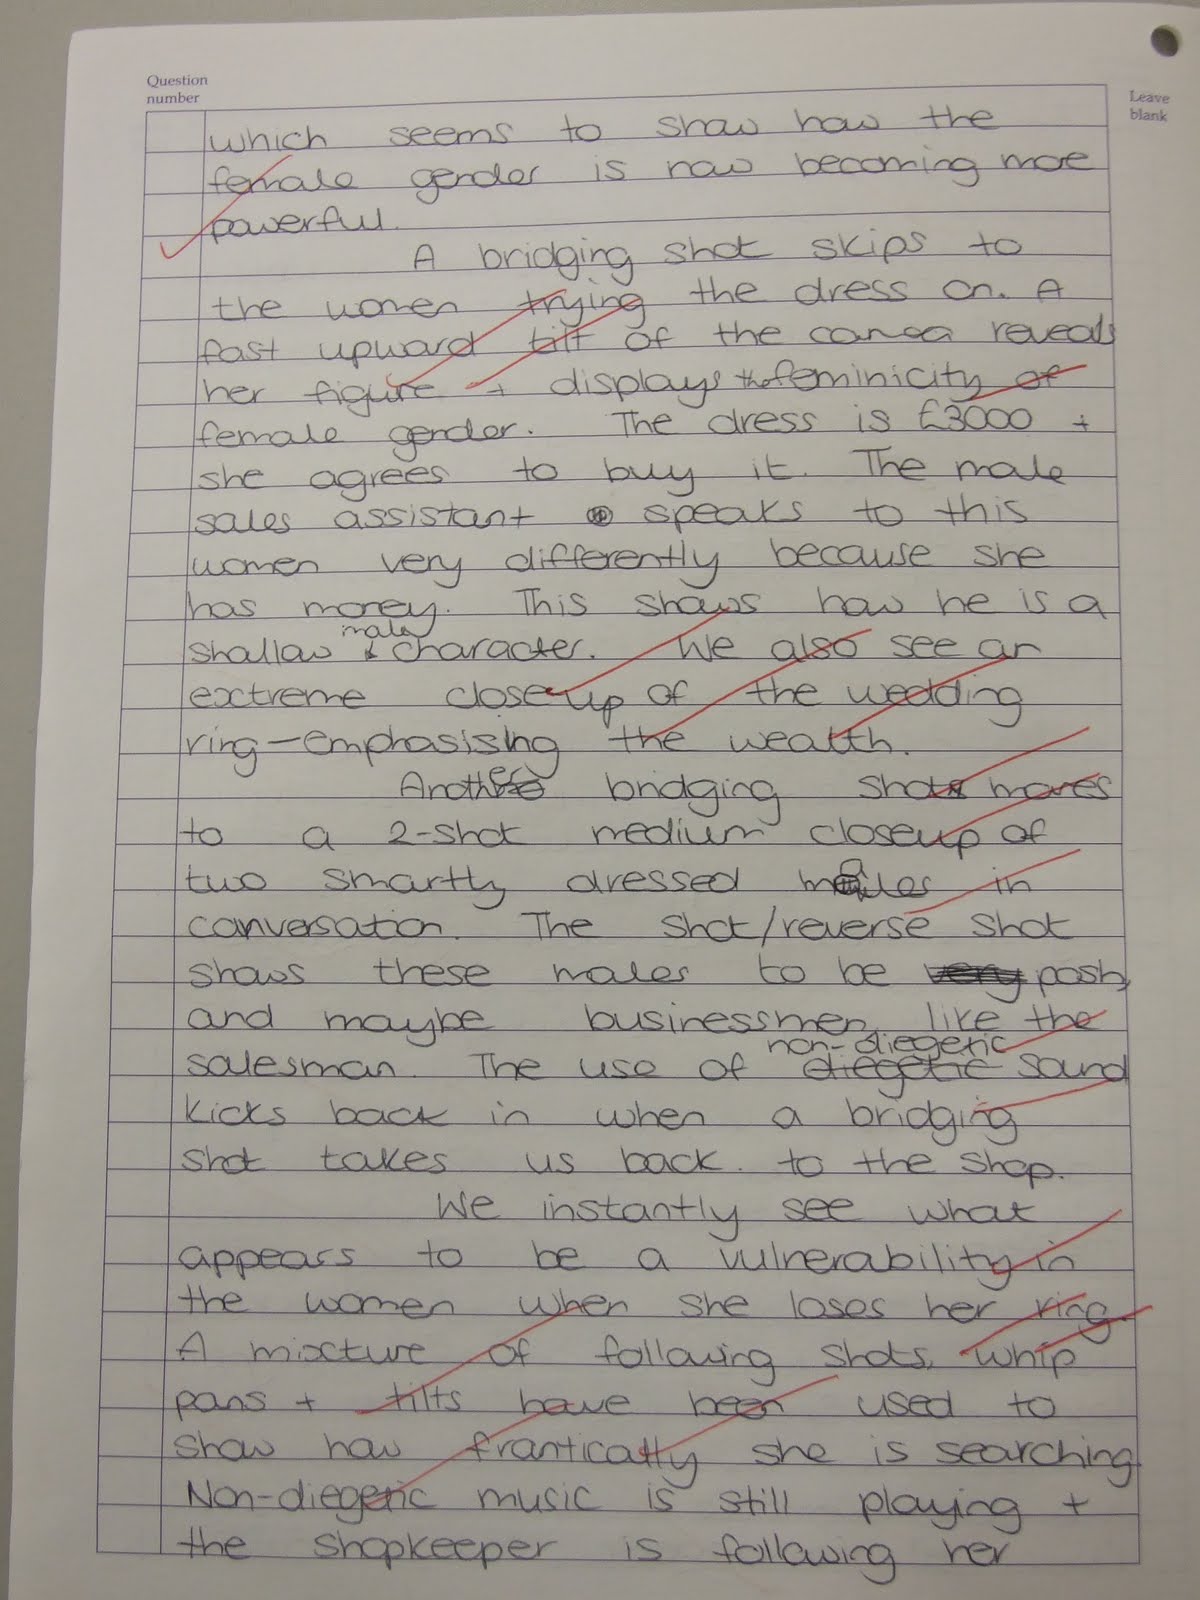 Question
number
Leave
blank
which seems to show how the
female gender is now becoming more
powerful.
A bridging shot skips to
the women trying the dress on. A
fast upward tilt of the camera reveals
her figure + displays the feminicity of
female gender. The dress is £3000 +
she agrees to buy it. The male
sales assistant speaks to this
women very differently because she
has money. This shows how he is a
shallow male character. We also see an
extreme closeup of the wedding
ring - emphasising the wealth.
Another bridging shot moves
to a 2-shot medium closeup of
two smartly dressed males in
conversation. The shot/reverse shot
shows these males to be very posh,
and maybe businessmen, like the
salesman. The use of diegetic non-diegetic sound
kicks back in when a bridging
shot takes us back. to the shop.
We instantly see what
appears to be a vulnerability in
the women when she loses her ring.
A mixture of following shots, whip
pans + tilts have been used to
show how frantically she is searching.
Non-diegetic music is still playing +
the shopkeeper is following her